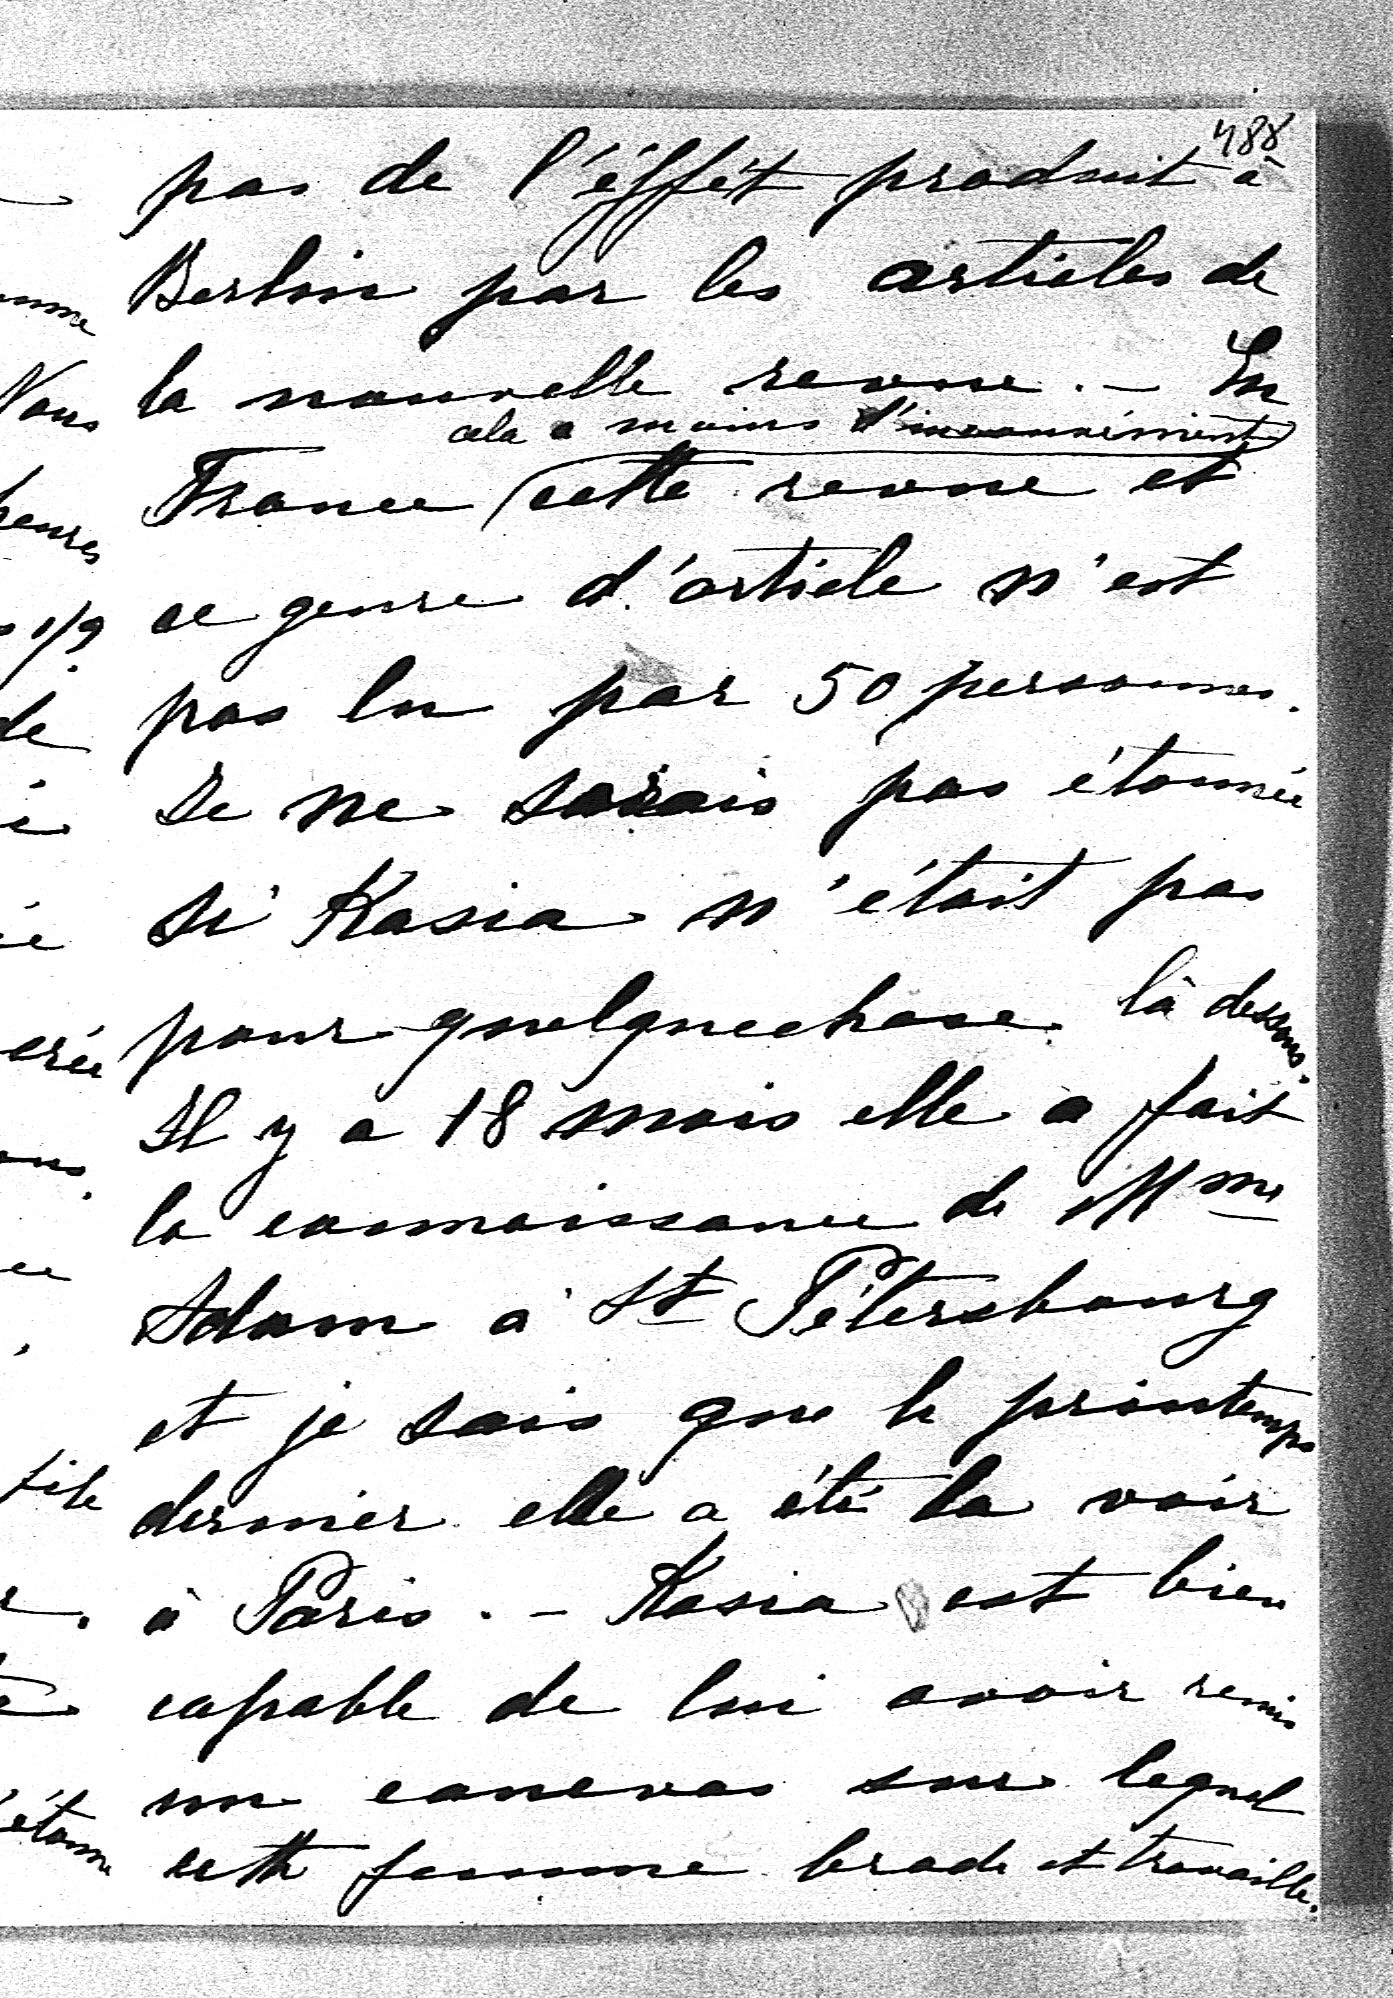 488
pas de l'éffét produit à
Berlin par les articles de
la nouvelle revue. – En
cela a moins d'inconvénient
France cette revue et
ce genre d'article n'est
pas lu par 50 personnes.
Je ne serais pas étonnée
si Kasia n'était pas
pour quelquechose là dessous.
Il y a 18 mois elle a fait
la connaissance de Mme
Adam à St Pétersbourg
et je sais que le printemps
dernier elle a été la voir
à Paris. – Kasia est bien
capable de lui avoir remis
un canevas sur lequel
cette femme brode et travaille.